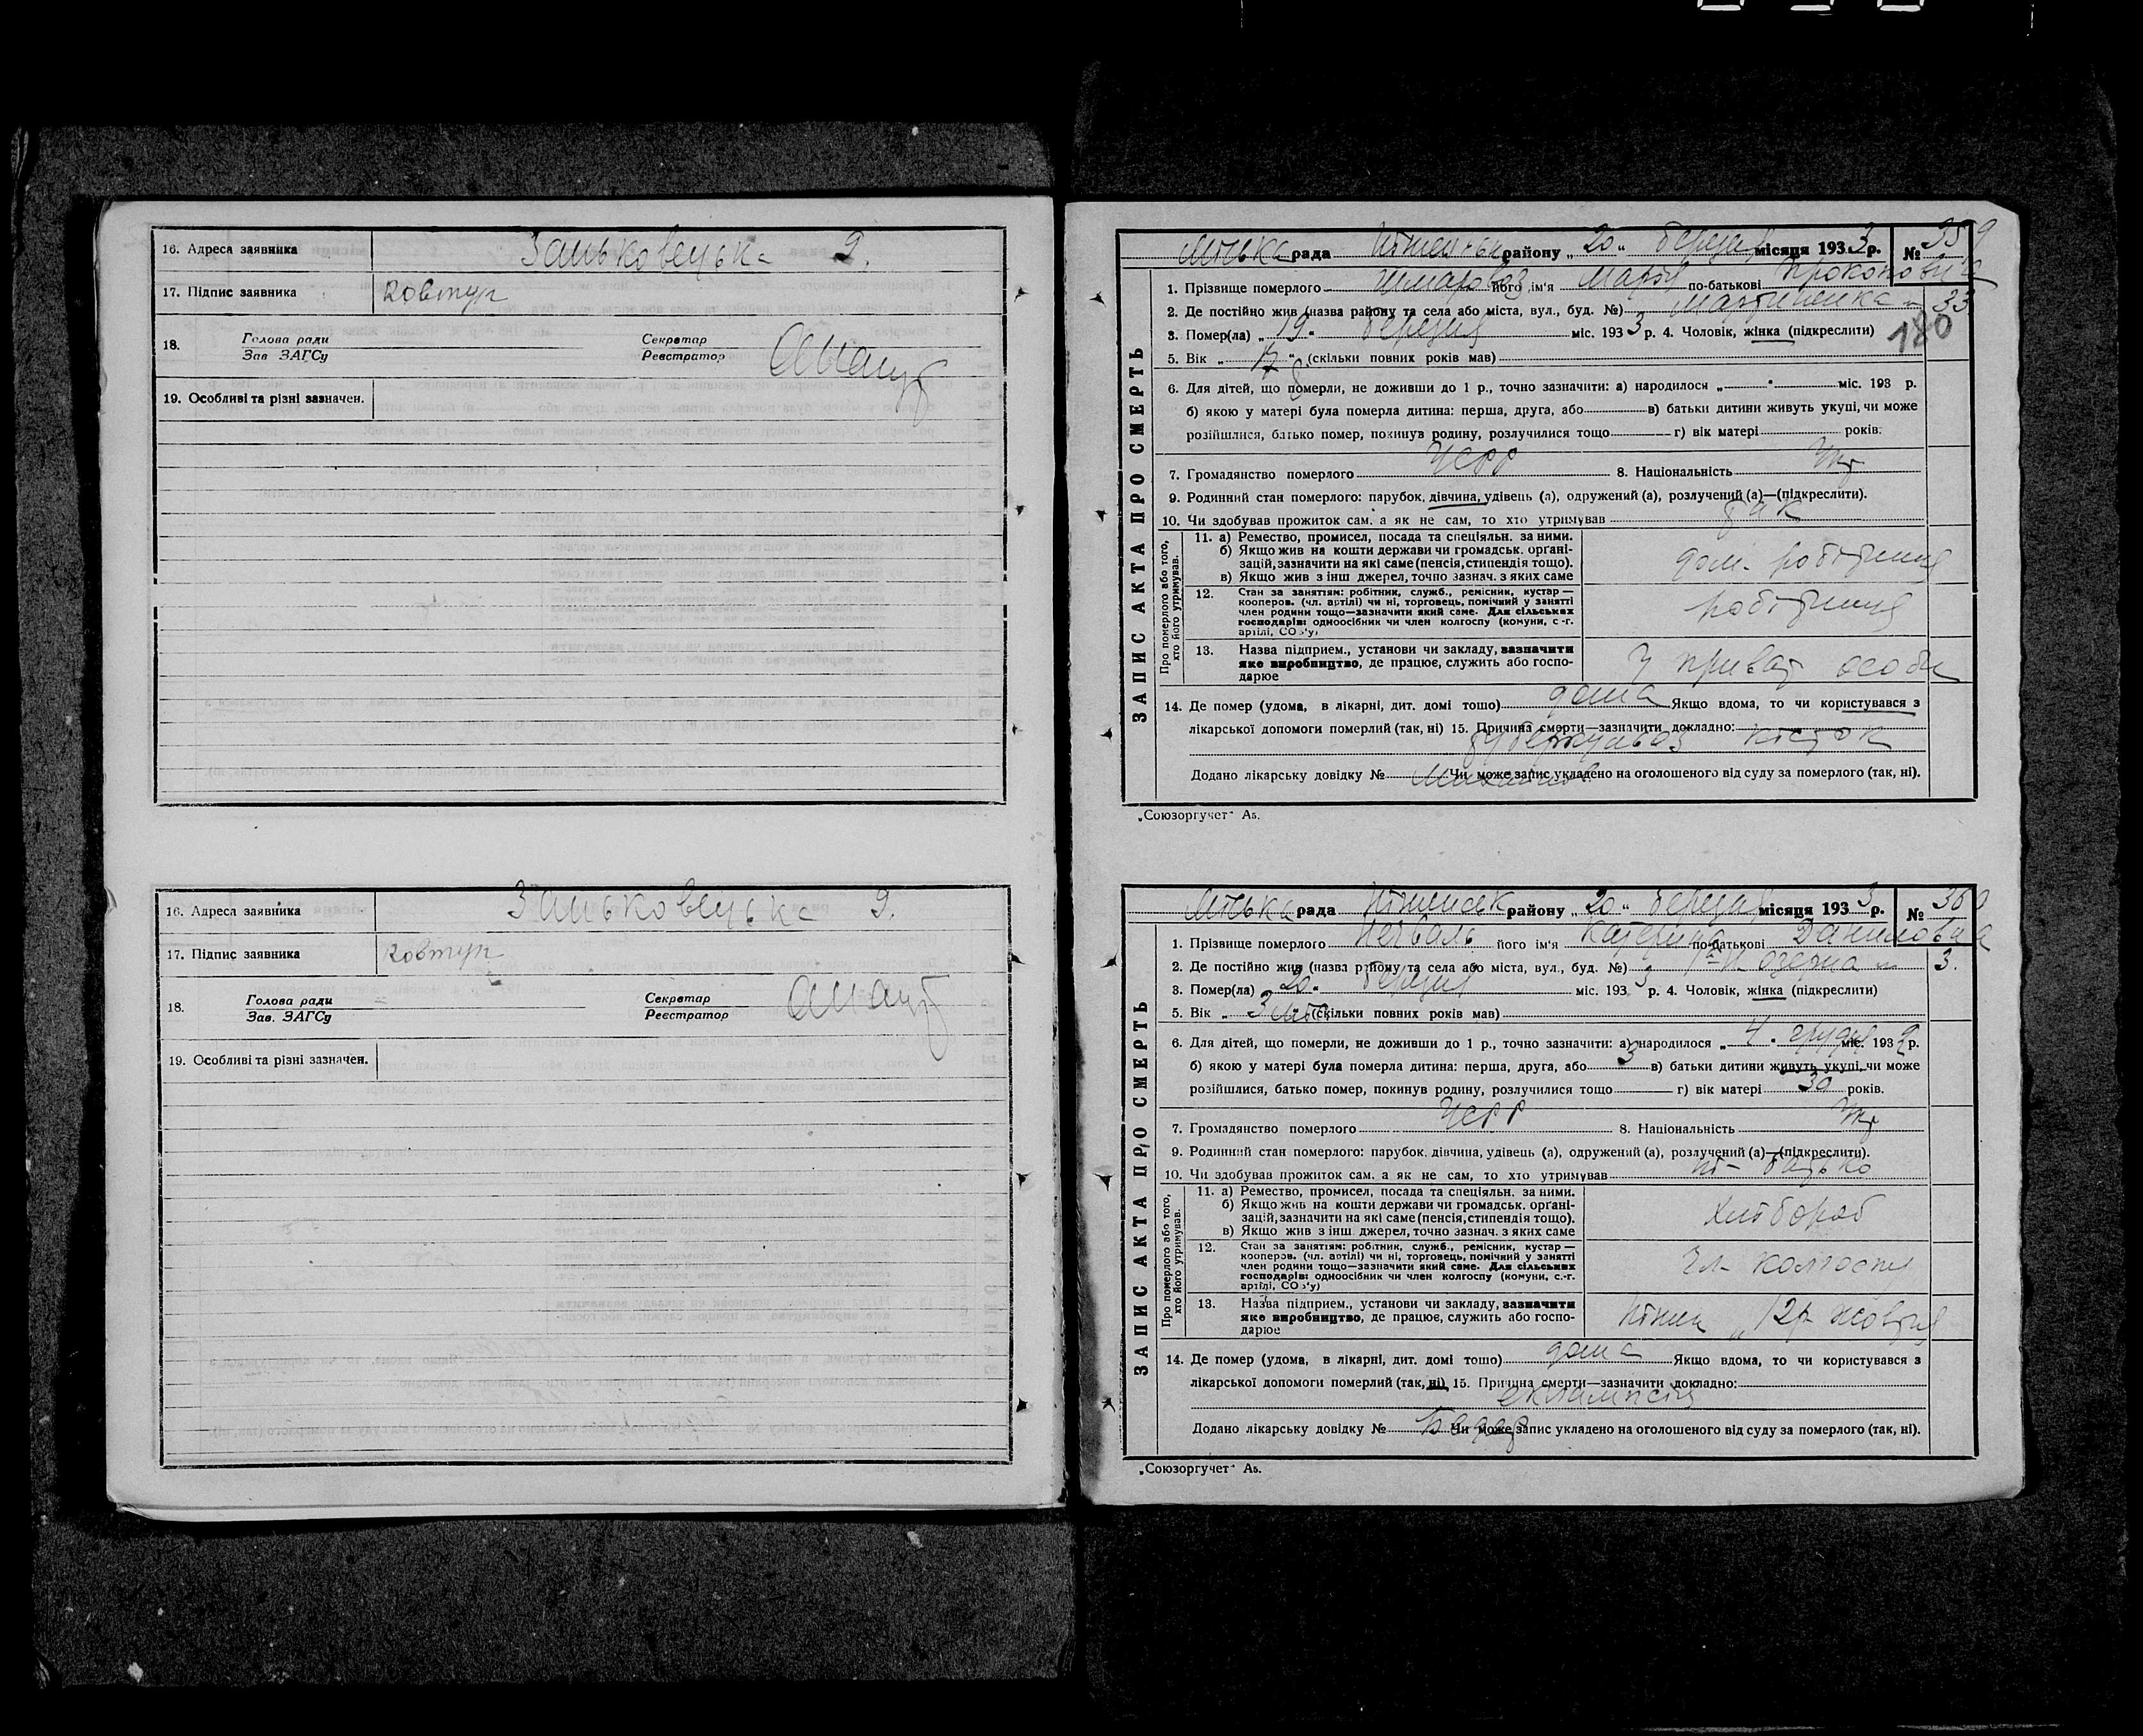 16. Адреса заявника Заньковецька 9.
17. Підпис заявника Ковтун
18. Голова ради Секретар
Зав ЗАГСу Реєстратор
19. Особливі та різні зазначен.
16. Адреса заявника Заньковецька 9.
17. Підпис заявника Ковтун
18. Голова ради Секретар
Зав. ЗАГСу Реєстратор
19. Особливі та різні зазначен.
ЗАПИС АКТА ПРО СМЕРТЬ
Міська рада Ніженськ району „20" березня місяця 1933 р. № 359
1. Прізвище померлого Шмаровоз його ім'я Марія по-батькові Прокоповна
2. Де постійно жив (назва району та села або міста, вул., буд. №) Мартиненка 33
3. Помер(ла) „19" березня міс. 1933 р. 4. Чоловік, жінка (підкреслити) 180
5. Вік „ " (скільки повних років мав)
6. Для дітей, що померли, не доживши до 1 р., точно зазначити: а) народилося „ " міс. 193 р.
б) якою у матері була померла дитина: перша, друга, або в) батьки дитини живуть укупі, чи може
розійшлися, батько помер, покинув родину, розлучилися тощо г) вік матері років.
7. Громадянство померлого УСРР 8. Національність Укр
9. Родинний стан померлого: парубок, дівчина, удівець (а), одружений (а), розлучений (а)—(підкреслити).
10. Чи здобував прожиток сам, а як не сам, то хто утримував так
Про померлого або того, хто його утримував.
11. а) Ремество, промисел, посада та спеціяльн. за ними.
б) Якщо жив на кошти держави чи громадськ. органі-
зацій, зазначити на які саме (пенсія, стипендія тощо).
в) Якщо жив з інш джерел, точно зазнач. з яких саме
дом. робітниця
12. Стан за заняттям: робітник, служб., ремісник, кустар —
кооперов. (чл. артілі) чи ні, торговець, помічний у занятті
член родини тощо—зазначити який саме. Для сільських
господарів: одноосібник чи член колгоспу (комуни, с.-г.
артілі, СОЗ'у)
робітниця
13. Назва підприєм., установи чи закладу, зазначити
яке виробництво, де працює, служить або госпо-
дарює
у приват особи
14. Де помер (удома, в лікарні, дит. домі тощо) дома Якщо вдома, то чи користувався з
лікарської допомоги померлий (так, ні) 15. Причина смерти—зазначити докладно:
туберкульоз кісток
Додано лікарську довідку № Чи може запис укладено на оголошеного від суду за померлого (так, ні).
„Союзоргучет" А5.
ЗАПИС АКТА ПРО СМЕРТЬ
Міська рада Ніженськ району „20" березня місяця 1933 р. № 360
1. Прізвище померлого його ім'я Катерина по-батькові Даниловна
2. Де постійно жив (назва району та села або міста, вул., буд. №) озерна 3.
3. Помер(ла) „20" березня міс. 1933 р. 4. Чоловік, жінка (підкреслити)
5. Вік „3 міс. " (скільки повних років мав)
6. Для дітей, що померли, не доживши до 1 р., точно зазначити: а) народилося „4" грудня міс. 1932 р.
б) якою у матері була померла дитина: перша, друга, або 3 в) батьки дитини живуть укупі, чи може
розійшлися, батько помер, покинув родину, розлучилися тощо г) вік матері 30 років.
7. Громадянство померлого УСРР 8. Національність Укр
9. Родинний стан померлого: парубок, дівчина, удівець (а), одружений (а), розлучений (а)—(підкреслити).
10. Чи здобував прожиток сам, а як не сам, то хто утримував ні - батько
Про померлого або того, хто його утримував.
11. а) Ремество, промисел, посада та спеціяльн. за ними.
б) Якщо жив на кошти держави чи громадськ. органі-
зацій, зазначити на які саме (пенсія, стипендія тощо).
в) Якщо жив з інш джерел, точно зазнач. з яких саме
Хлібороб
12. Стан за заняттям: робітник, служб., ремісник, кустар —
кооперов. (чл. артілі) чи ні, торговець, помічний у занятті
член родини тощо—зазначити який саме. Для сільських
господарів: одноосібник чи член колгоспу (комуни, с.-г.
артілі, СОЗ'у)
Чл. колгоспу
13. Назва підприєм., установи чи закладу, зазначити
яке виробництво, де працює, служить або госпо-
дарює
Ніжин „12р. жовтня
14. Де помер (удома, в лікарні, дит. домі тощо) дома Якщо вдома, то чи користувався з
лікарської допомоги померлий (так, ні) 15. Причина смерти—зазначити докладно:
еклампсія
Додано лікарську довідку № Чи може запис укладено на оголошеного від суду за померлого (так, ні).
„Союзоргучет" А5.